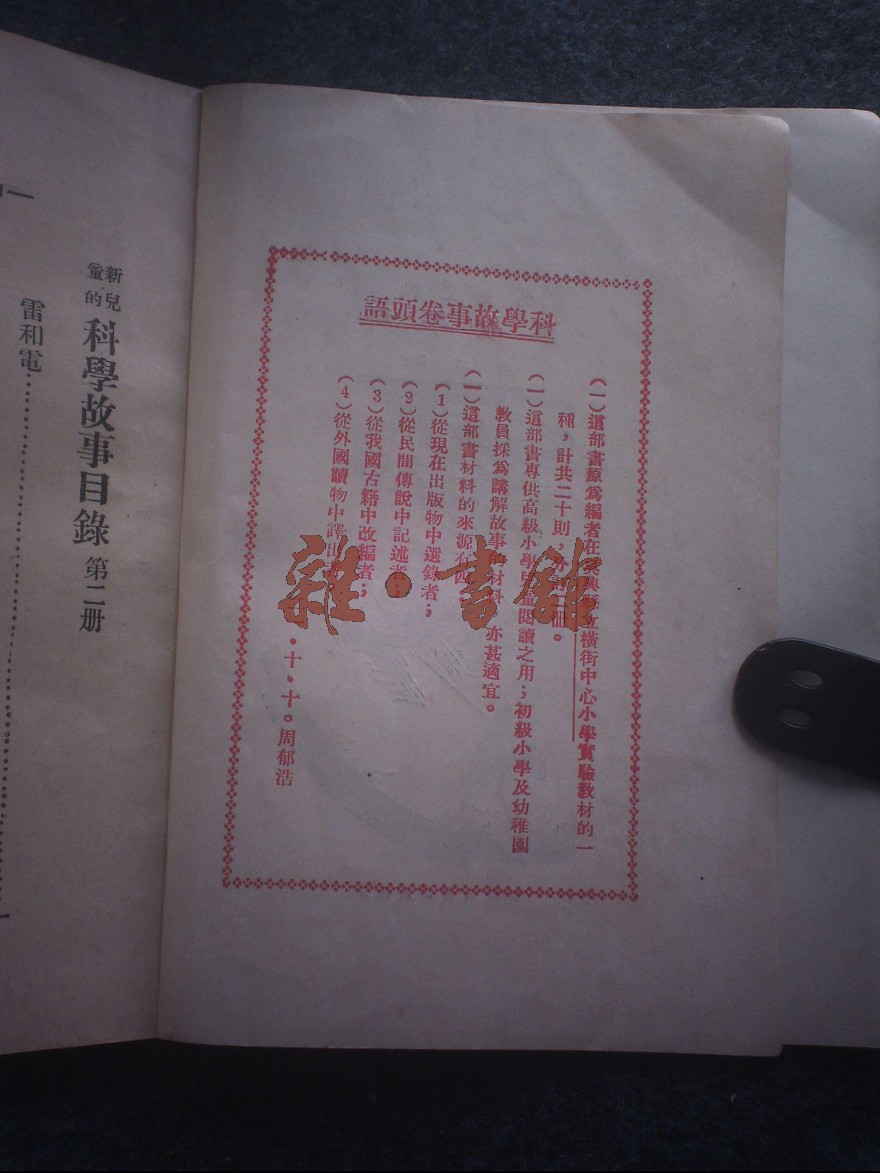 科學故事卷頭語
(一)這部書原為編者在興縣立橫街中心小學實驗教材的一
種，計共二十則，分二冊。
(一)這部書專供高級小學兒童閱讀之用；初級小學及幼稚園
教員採為講解故事的材料 亦甚適宜。
(一)這部書材料的來源有四：
(1)從現在出版物中選錄者；
(2)從民間傳說中記述者；
(3)從我國古籍中改編者；
(4)從外國讀物中譯出
•十•十。周郁浩
新兒童的 科學故事目錄 第二册
雷和電
一
雜•書館